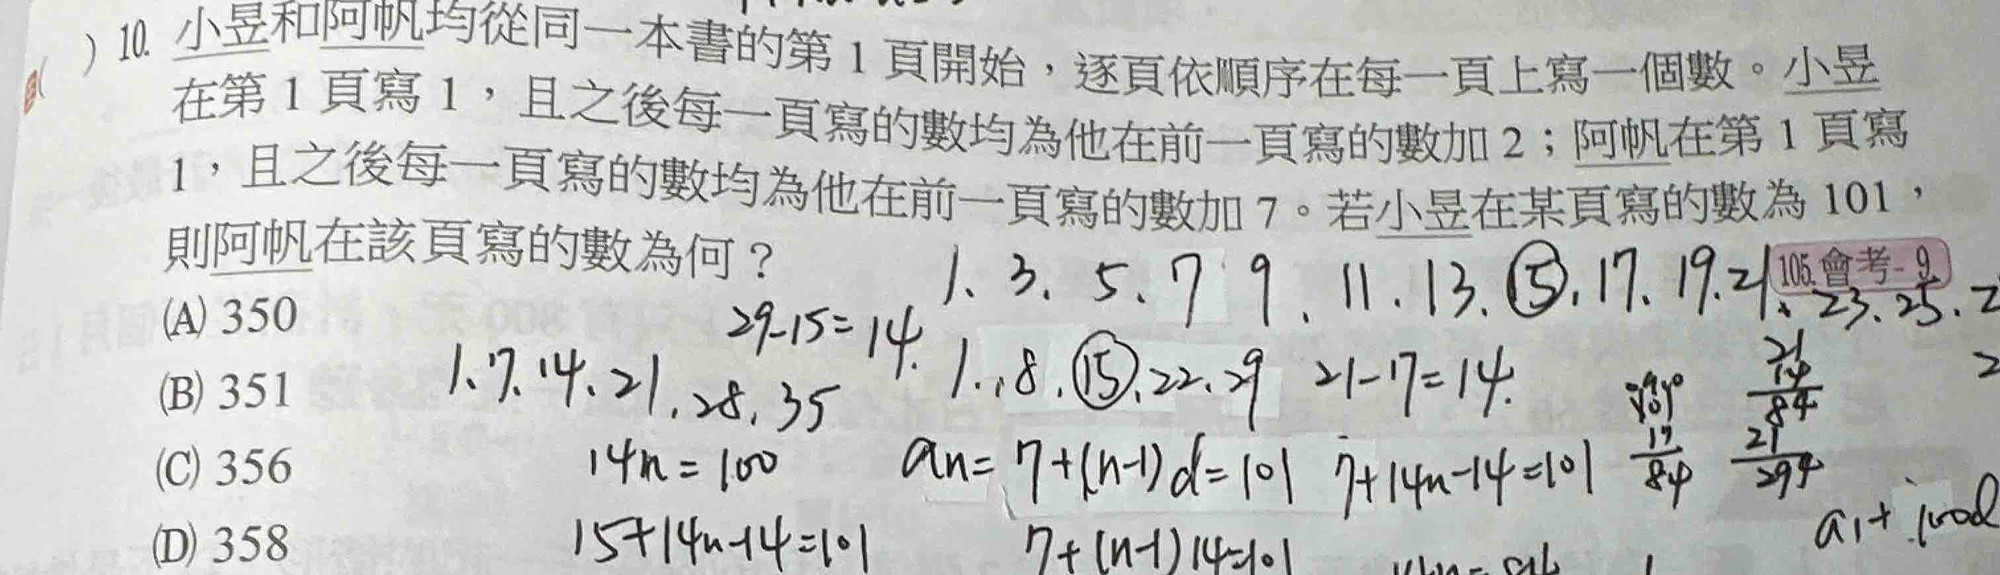 ( ) 10. 小昱和阿帆均從同一本書的第 1 頁開始，逐頁依順序在每一頁上寫一個數。小昱
在第 1 頁寫 1，且之後每一頁寫的數均為他在前一頁寫的數加 2；阿帆在第 1 頁寫
1，且之後每一頁寫的數均為他在前一頁寫的數加 7。若小昱在某頁寫的數為 101，
則阿帆在該頁寫的數為何？
105.會考-9
(A) 350
(B) 351
(C) 356
(D) 358
1. 3. 5. 7 9. 11. 13. 15. 17. 19. 21. 23. 25.
29-15=14.
1. 7. 14. 21. 28. 35
1. 8. 15. 22. 29
21-17=14.
14n=100
an=7+(n-1)d=101
7+14n-14=101
15+14n-14=101
7+(n-1)14=101
17
84
21
14
84
21
294